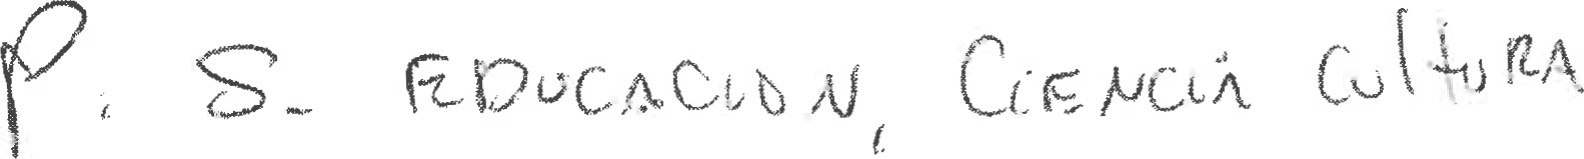 P. S. EDUCACION, CIENCIA CULTURA